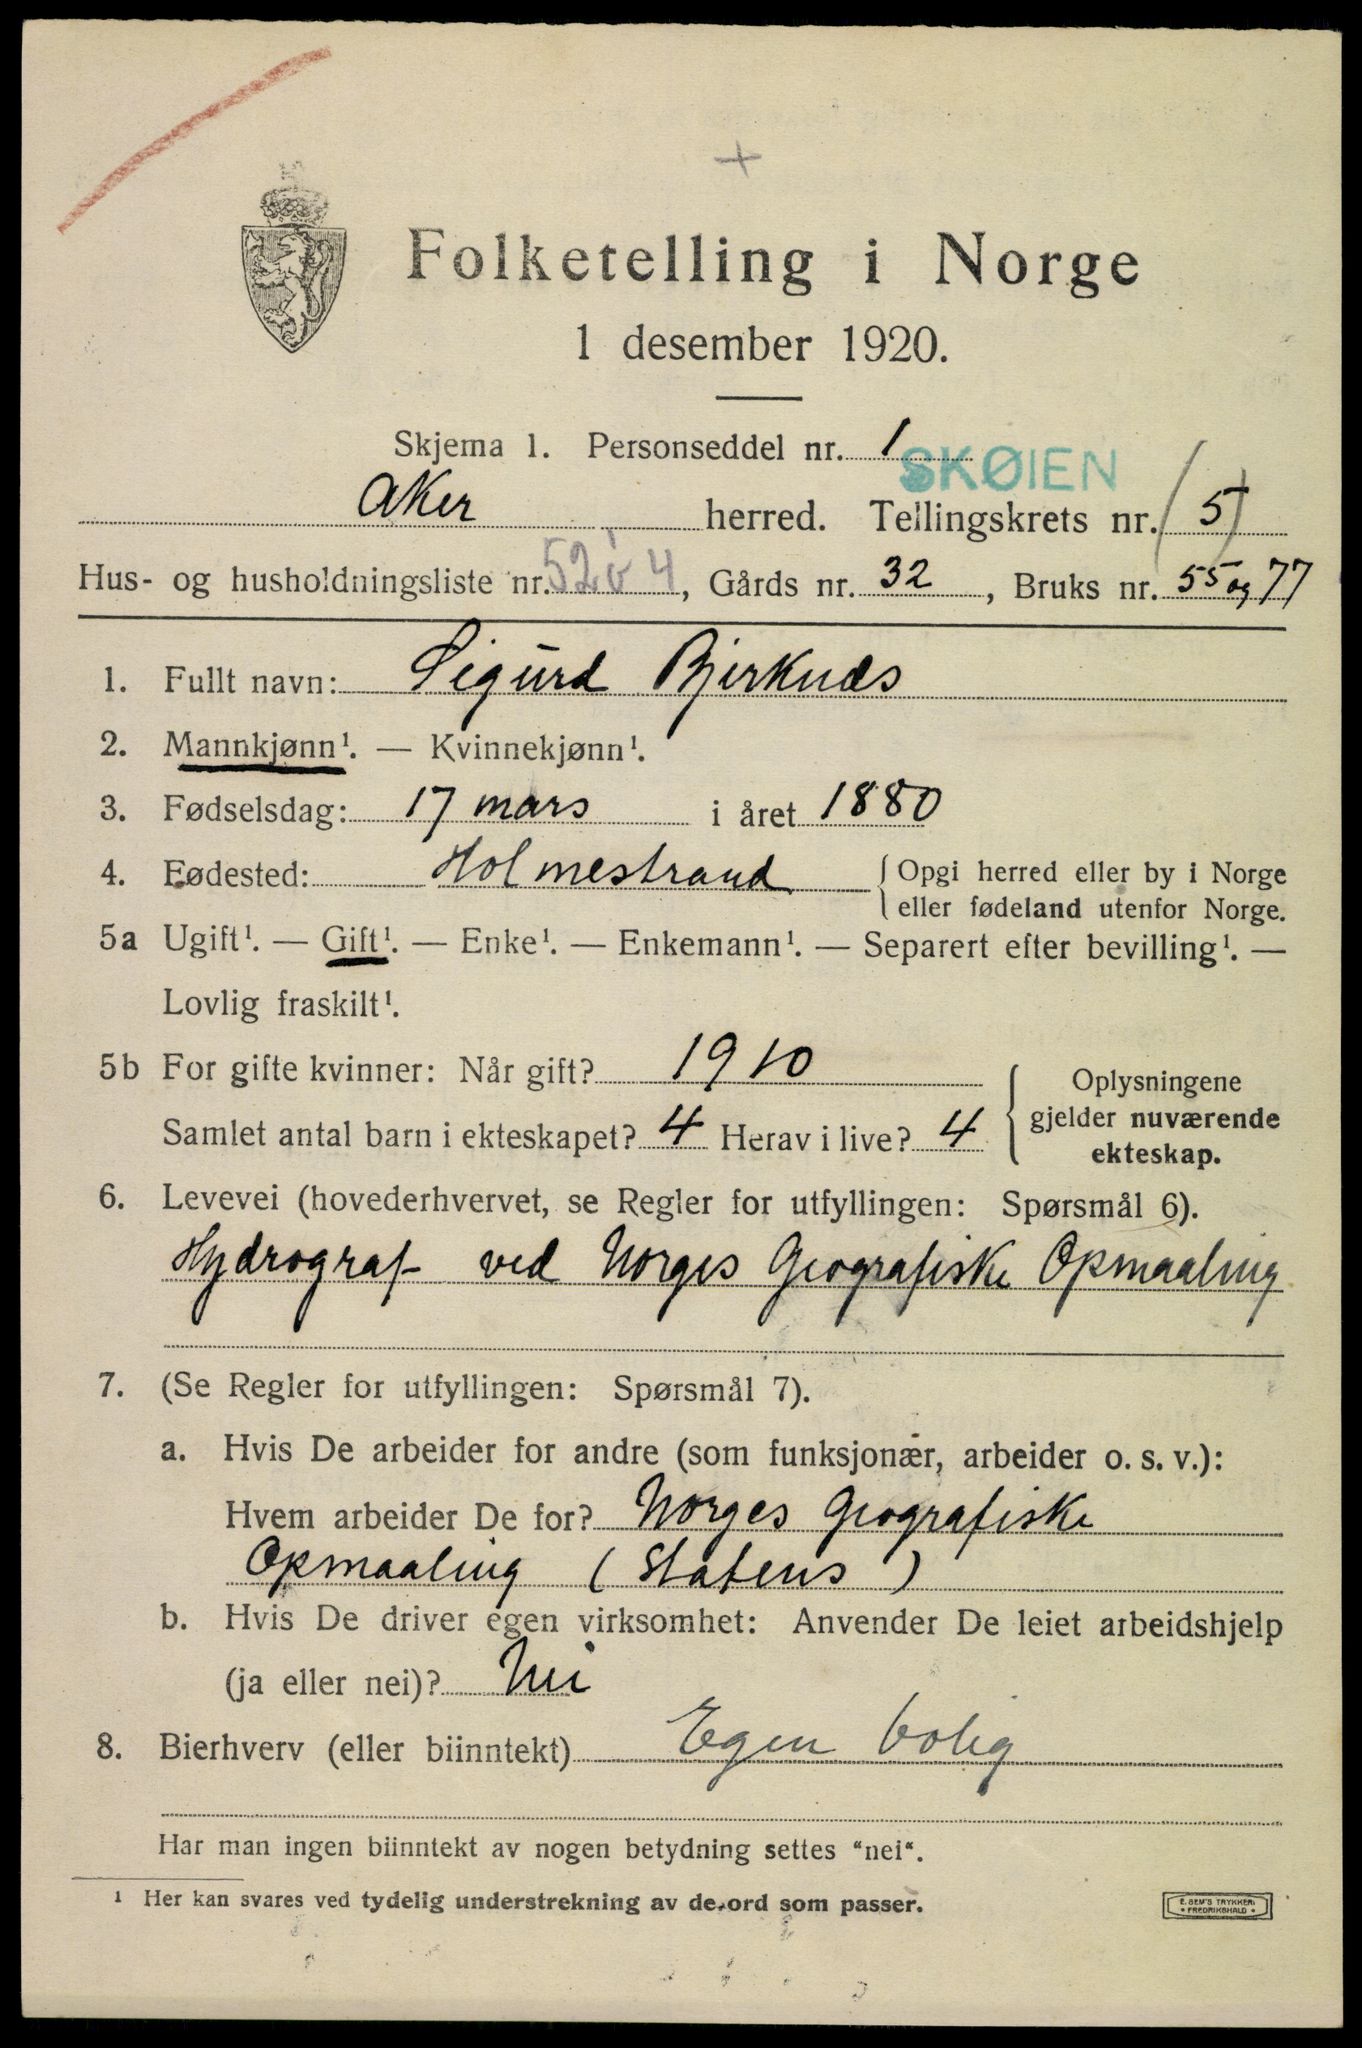 Folketelling i Norge
1 desember 1920.
Skjema 1. Personseddel nr. 1
SKØIEN
Aker herred. Tellingskrets nr. (5)
Hus- og husholdningsliste nr. 4, Gårds nr. 32, Bruks nr. 55 og 77
1. Fullt navn: Sigurd Bjerknæs
2. Mannkjønn¹. — Kvinnekjønn¹.
3. Fødselsdag: 17 mars i året 1880
4. Fødested: Holmestrand { Opgi herred eller by i Norge
eller fødeland utenfor Norge.
5a Ugift¹. — Gift¹. — Enke¹. — Enkemann¹. — Separert efter bevilling¹. —
Lovlig fraskilt¹.
5b For gifte kvinner: Når gift? 1910
Samlet antal barn i ekteskapet? 4 Herav i live? 4
{ Oplysningene
gjelder nuværende
ekteskap.
6. Levevei (hovederhvervet, se Regler for utfyllingen: Spørsmål 6).
Hydrograf ved Norges Geografiske Opmaaling
7. (Se Regler for utfyllingen: Spørsmål 7).
a. Hvis De arbeider for andre (som funksjonær, arbeider o. s. v.):
Hvem arbeider De for? Norges Geografiske
Opmaaling (Statens)
b. Hvis De driver egen virksomhet: Anvender De leiet arbeidshjelp
(ja eller nei)? Nei
8. Bierhverv (eller biinntekt) Egen bolig
Har man ingen biinntekt av nogen betydning settes "nei".
¹ Her kan svares ved tydelig understrekning av de ord som passer.
E. SEM'S TRYKKERI
• FREDRIKSHALD •